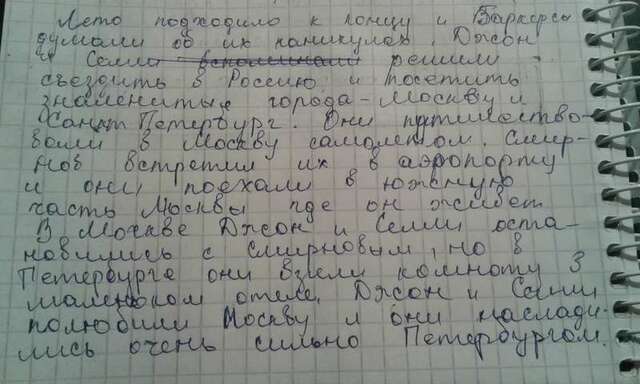 Лето подходило к концу и Баркеры
думали об их каникулах. Джон
и Салли вспоминали решили
съездить в Россию и посетить
знаменитые города - Москву и
Санкт Петербург. Они путешество-
вали в Москву самолетом. Смир-
нов встретил их в аэропорту
и они поехали в южную
часть Москвы где он живет
В Москве Джон и Салли оста-
новились с Смирновым, но в
Петербурге они взяли комноту в
маленьком отеле. Джон и Салли
полюбили Москву и они наслади-
лись очень сильно Петербургом.